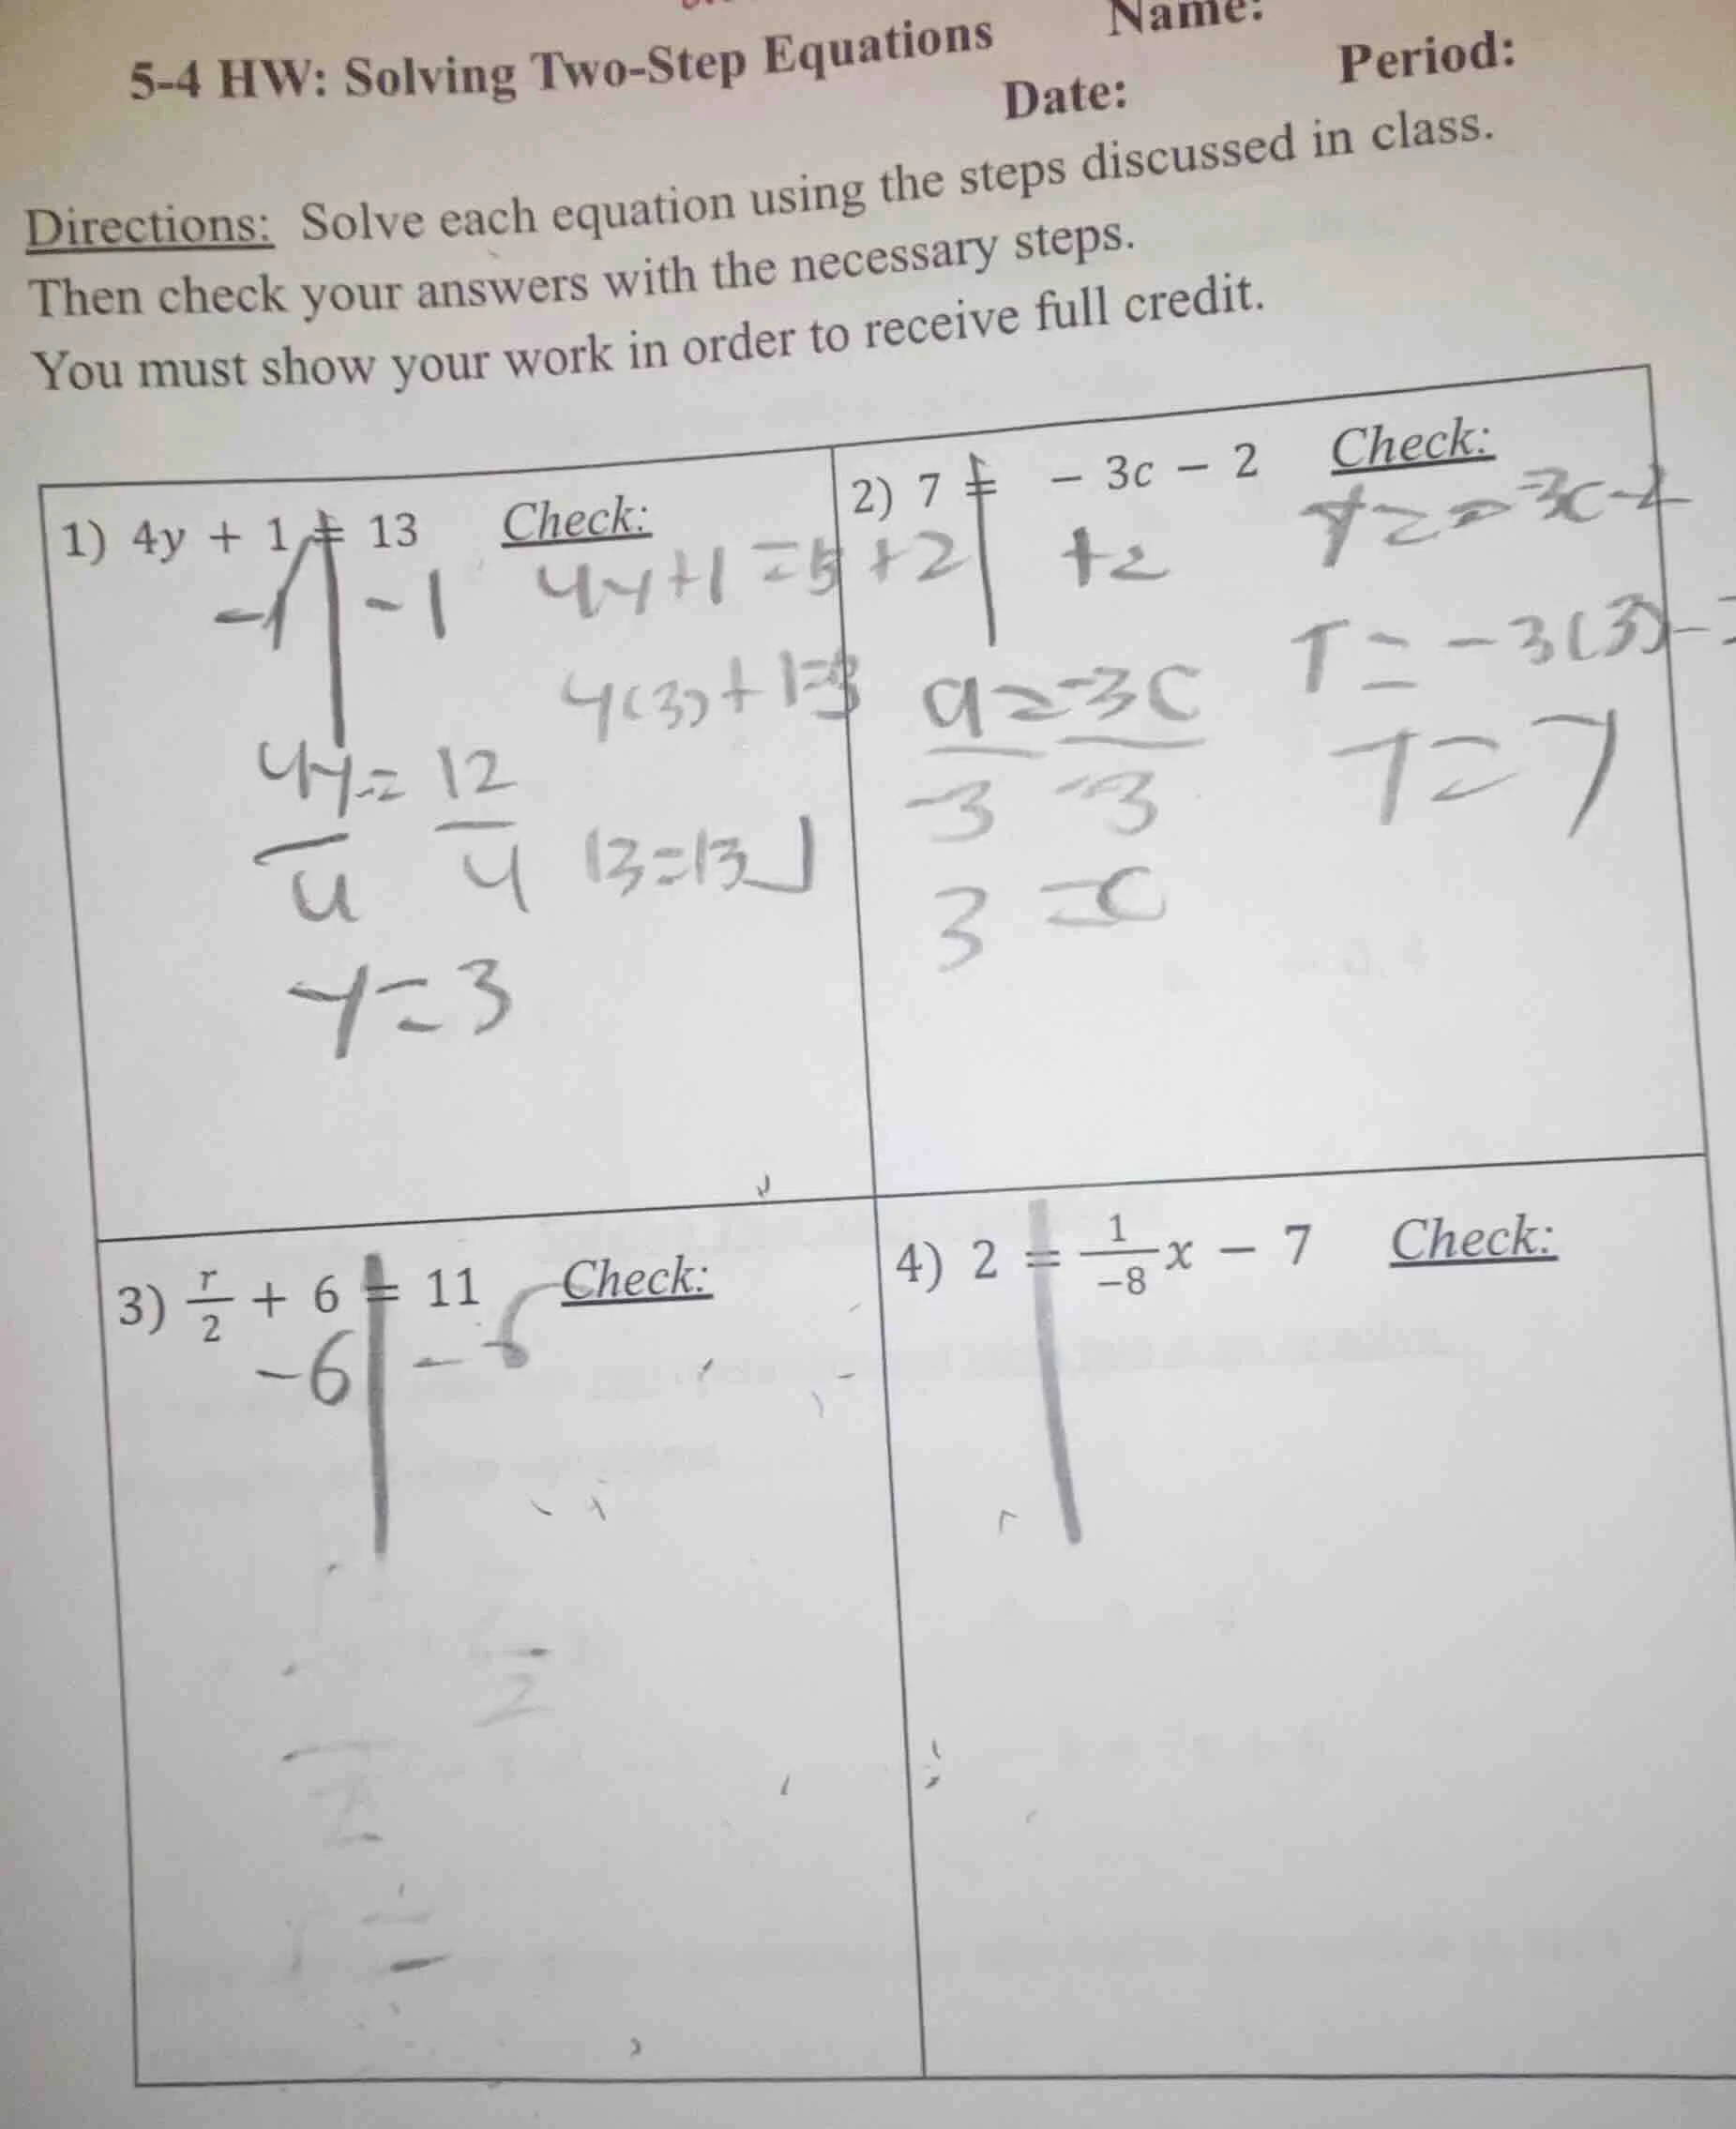 5-4 HW: Solving Two-Step Equations Name:
Date: Period:
Directions: Solve each equation using the steps discussed in class.
Then check your answers with the necessary steps.
You must show your work in order to receive full credit.
1) 4y + 1 = 13 Check:
-1 -1 4y+1 =
4(3)+1=
4y= 12
4 4 13=13
y=3
2) 7 = - 3c - 2 Check:
+2 +2 7= -3c-2
7= -3(3)-
9=-3c 7=7
-3 -3
3 =c
3) r/2 + 6 = 11 Check:
-6 -6
2
2
4) 2 = 1/-8 x - 7 Check: